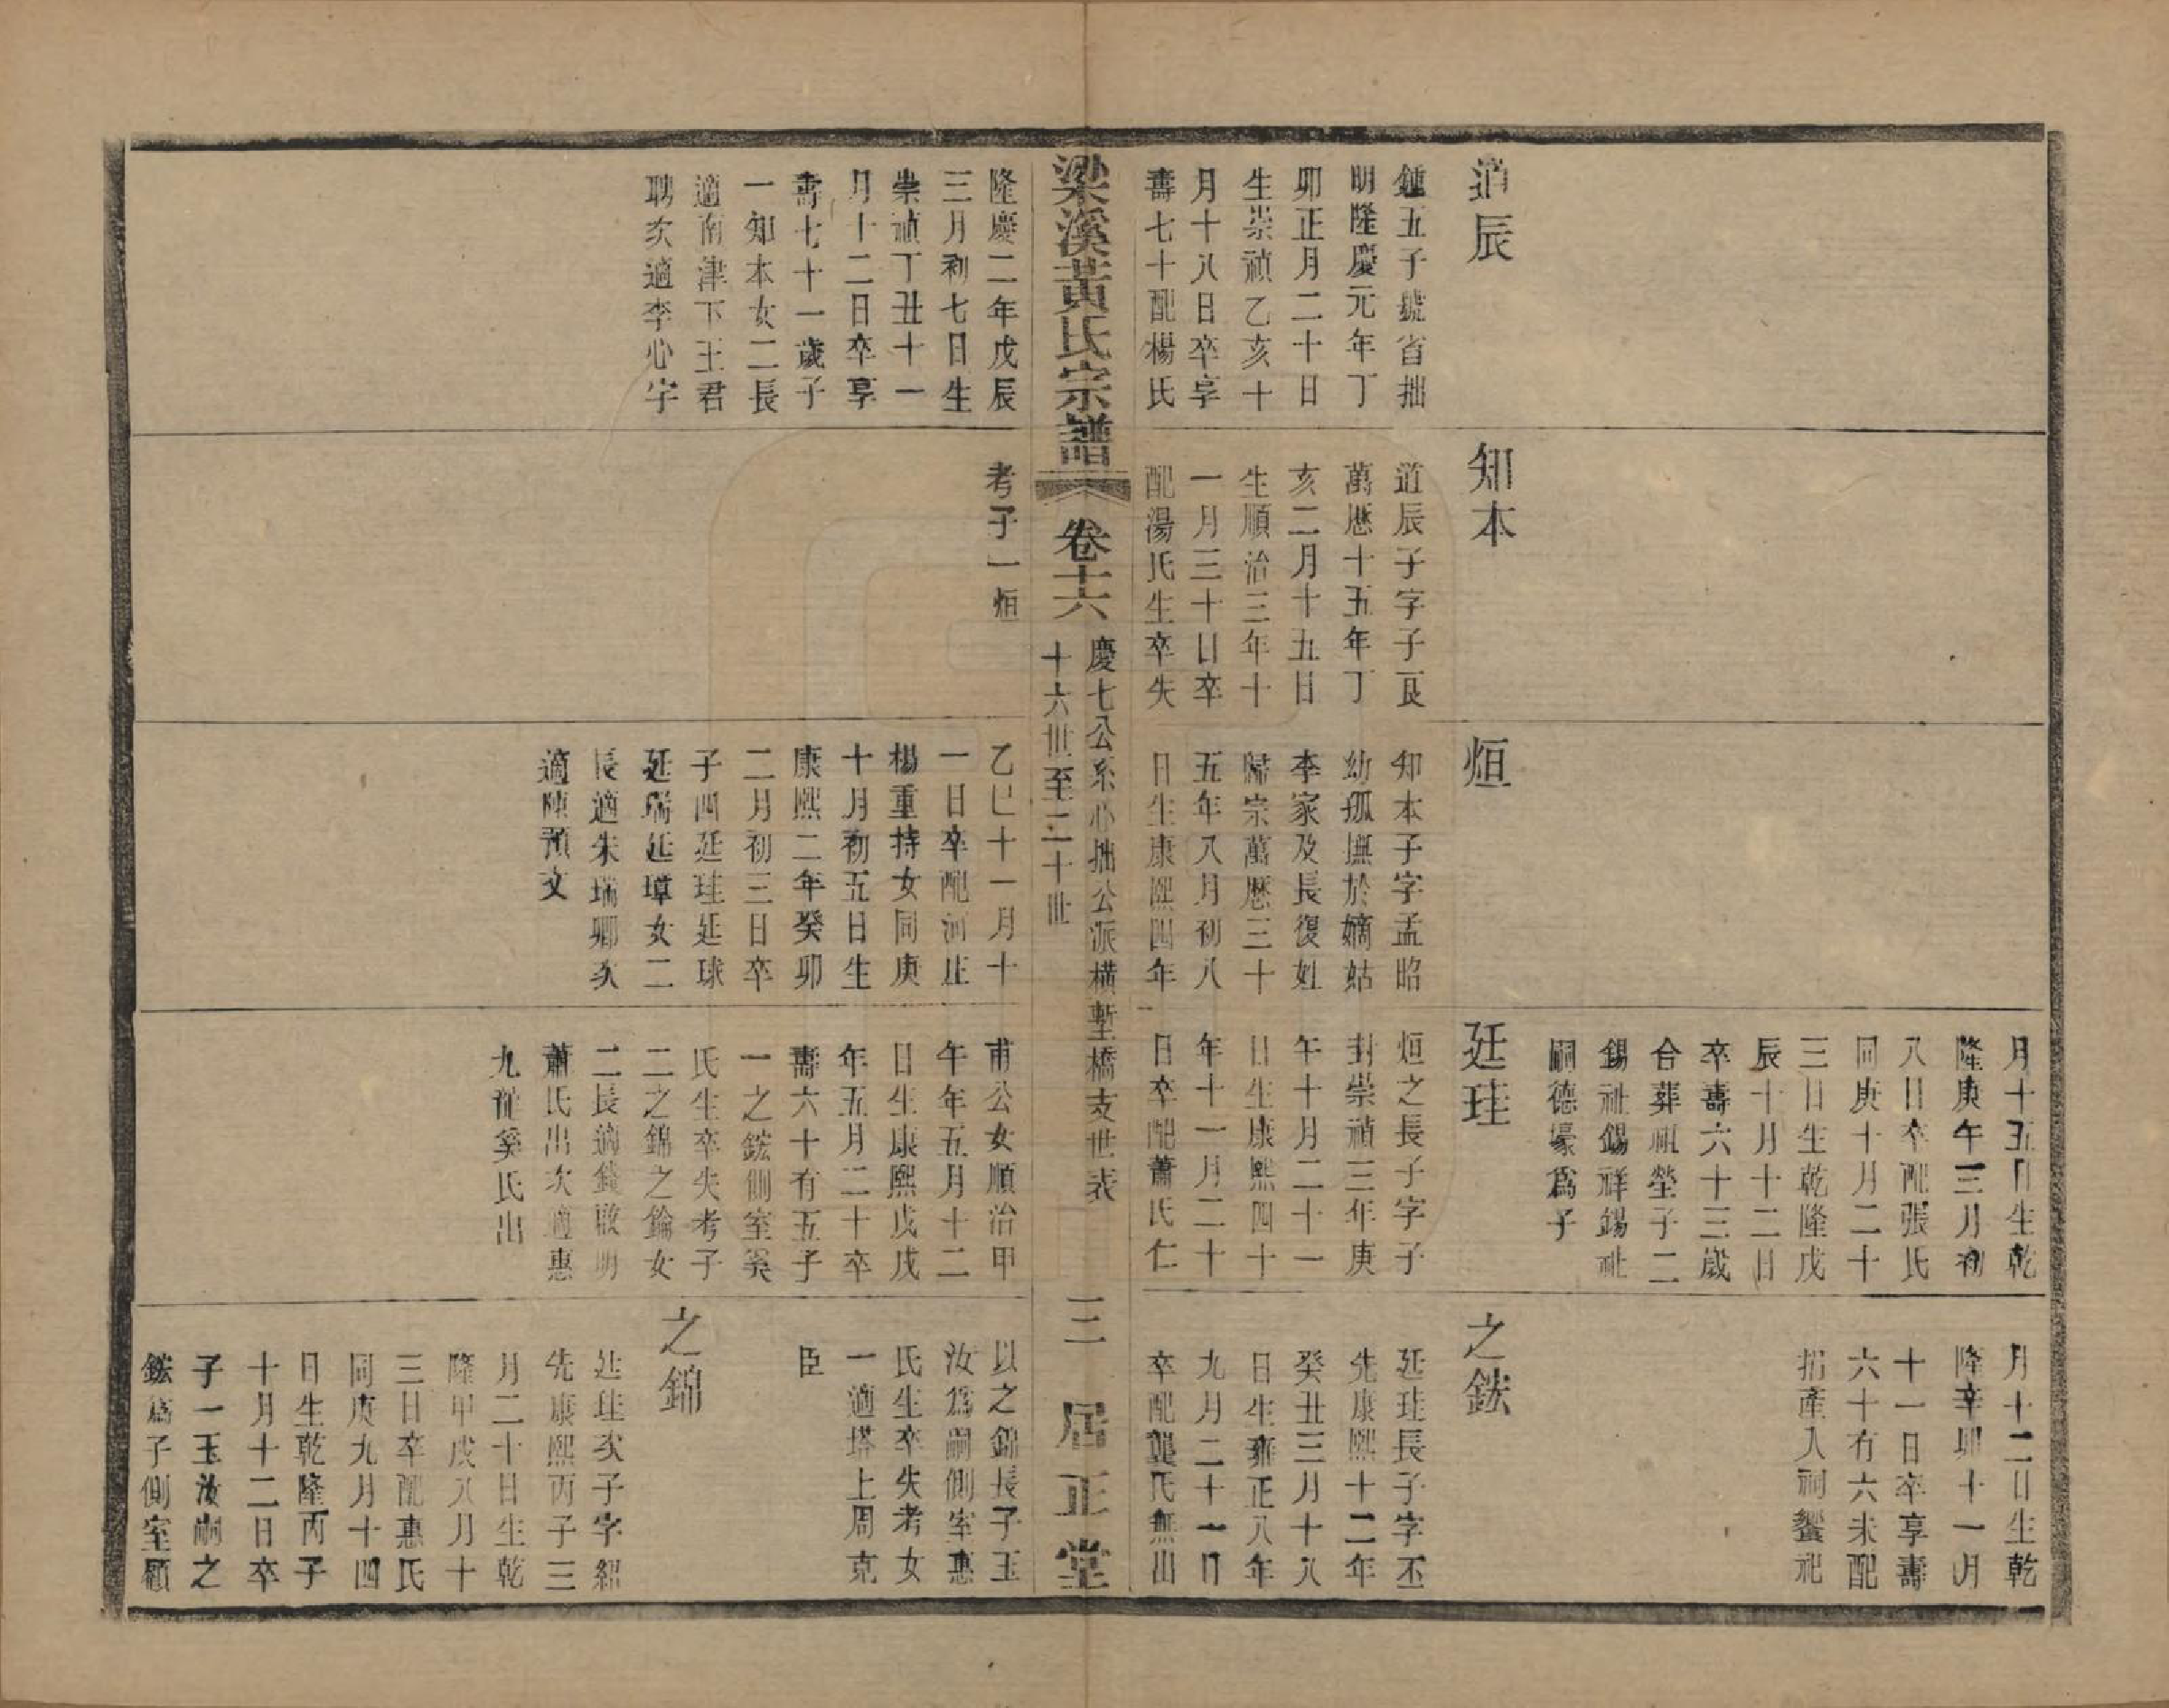 道辰
鍾五子號省拙
明隆慶元年丁
卯正月二十日
生崇禎乙亥十
月十八日卒享
壽七十配楊氏
知本
道辰子字子良
萬厯十五年丁
亥二月十五日
生順治三年十
一月三十日卒
配湯氏生卒失
烜
知本子字孟昭
幼孤撫於嫡姑
李家及長復姓
歸宗萬厯三十
五年八月初八
日生康熙四年
月十五日生乾
隆庚午三月初
八日卒配張氏
同庚十月二十
三日生乾隆戊
辰十月十二日
卒壽六十三歲
合葬祖塋子二
錫祉錫祥錫祉
嗣德壕爲子
廷珪
烜之長子字子
封崇禎三年庚
午十月二十一
日生康熙四十
年十一月二十
日卒配蕭氏仁
月十二日生乾
隆辛卯十一月
十一日卒享壽
六十有六未配
捐產入祠饗祀
之鋐
廷珪長子字丕
先康熙十二年
癸丑三月十八
日生雍正八年
九月二十一日
卒配龔氏無出
梁溪黃氏宗譜
卷十六
慶七公系心拙公派橫塹橋支世表
十六世至二十世
三
居正堂
隆慶二年戊辰
三月初七日生
崇禎丁丑十一
月十二日卒享
壽七十一歲子
一知本女二長
適南津下王君
聘次適李心宇
考子一烜
乙巳十一月十
一日卒配河止
楊重持女同庚
十月初五日生
康熙二年癸卯
二月初三日卒
子四廷珪廷球
廷瑞廷璋女二
長適朱瑞卿次
適陳預文
甫公女順治甲
午年五月十二
日生康熙戊戌
年五月二十卒
壽六十有五子
一之鋐側室奚
氏生卒失考子
二之錦之錀女
二長適錢啟明
蕭氏出次適惠
九從奚氏出
以之錦長子玉
汝爲嗣側室惠
氏生卒失考女
一適塔上周克
臣
之錦
廷珪次子字紹
先康熙丙子三
月二十日生乾
隆甲戌八月十
三日卒配惠氏
同庚九月十四
日生乾隆丙子
十月十二日卒
子一玉汝嗣之
鋐爲子側室顧